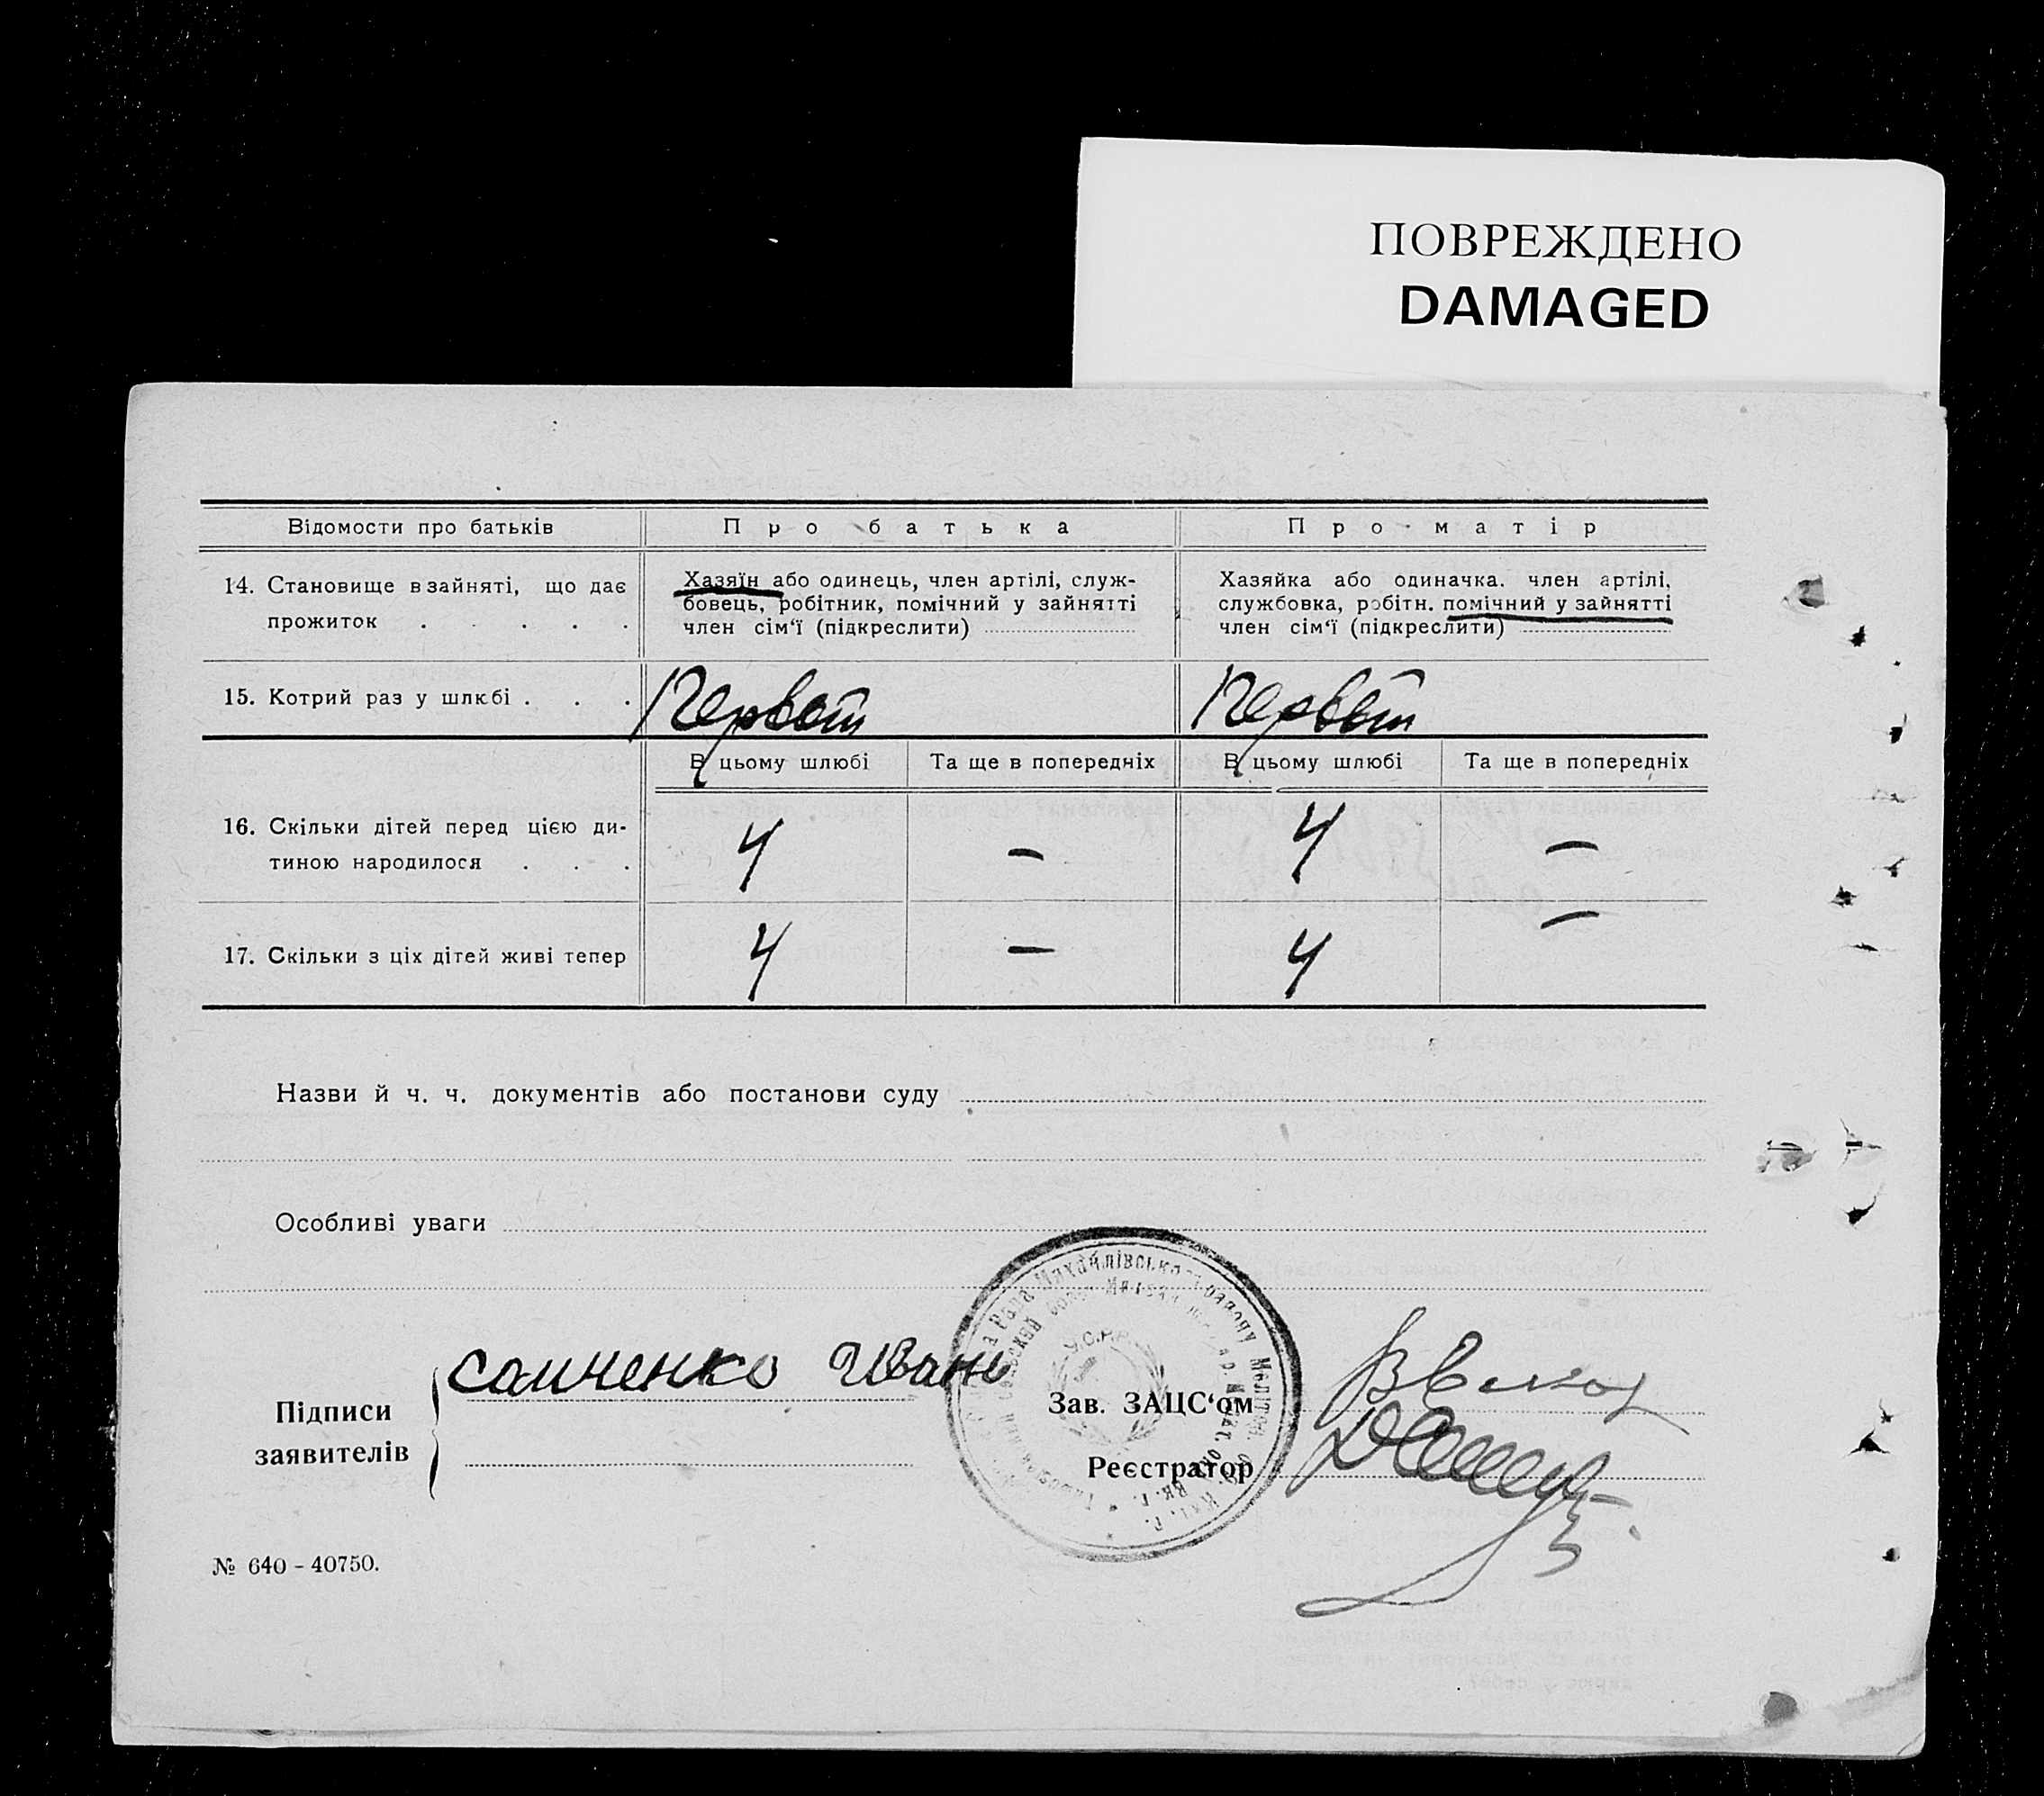 ПОВРЕЖДЕНО
DAMAGED
Відомости про батьків
Про батька
Про матір
14. Становище в зайняті, що дає
прожиток . . . . .
Хазяїн або одинець, член артілі, служ-
бовець, робітник, помічний у зайнятті
член сім‘ї (підкреслити)
Хазяйка або одиначка. член артілі,
службовка, робітн. помічний у зайнятті
член сім‘ї (підкреслити)
15. Котрий раз у шлюбі . . .
Первый
Первый
В цьому шлюбі
Та ще в попередніх
В цьому шлюбі
Та ще в попередніх
16. Скільки дітей перед цією ди-
тиною народилося . . .
4 – 4 –
17. Скільки з ціх дітей живі тепер
4 – 4 –
Назви й ч. ч. документів або постанови суду
Особливі уваги
Рада Михайлівського району
У.С.Р.Р.
Підписи
заявителів
Самченко Иван
Зав. ЗАЦС‘ом
Реєстратор
№ 640 - 40750.